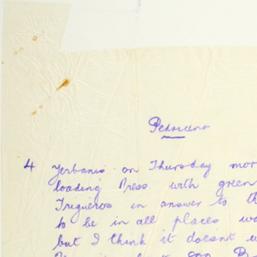 Pedreceno
4 Yerbanis on Thursday mor
loading Press with green
Tregueros in answer to th
to be in all places wa
but I think it doesnt w